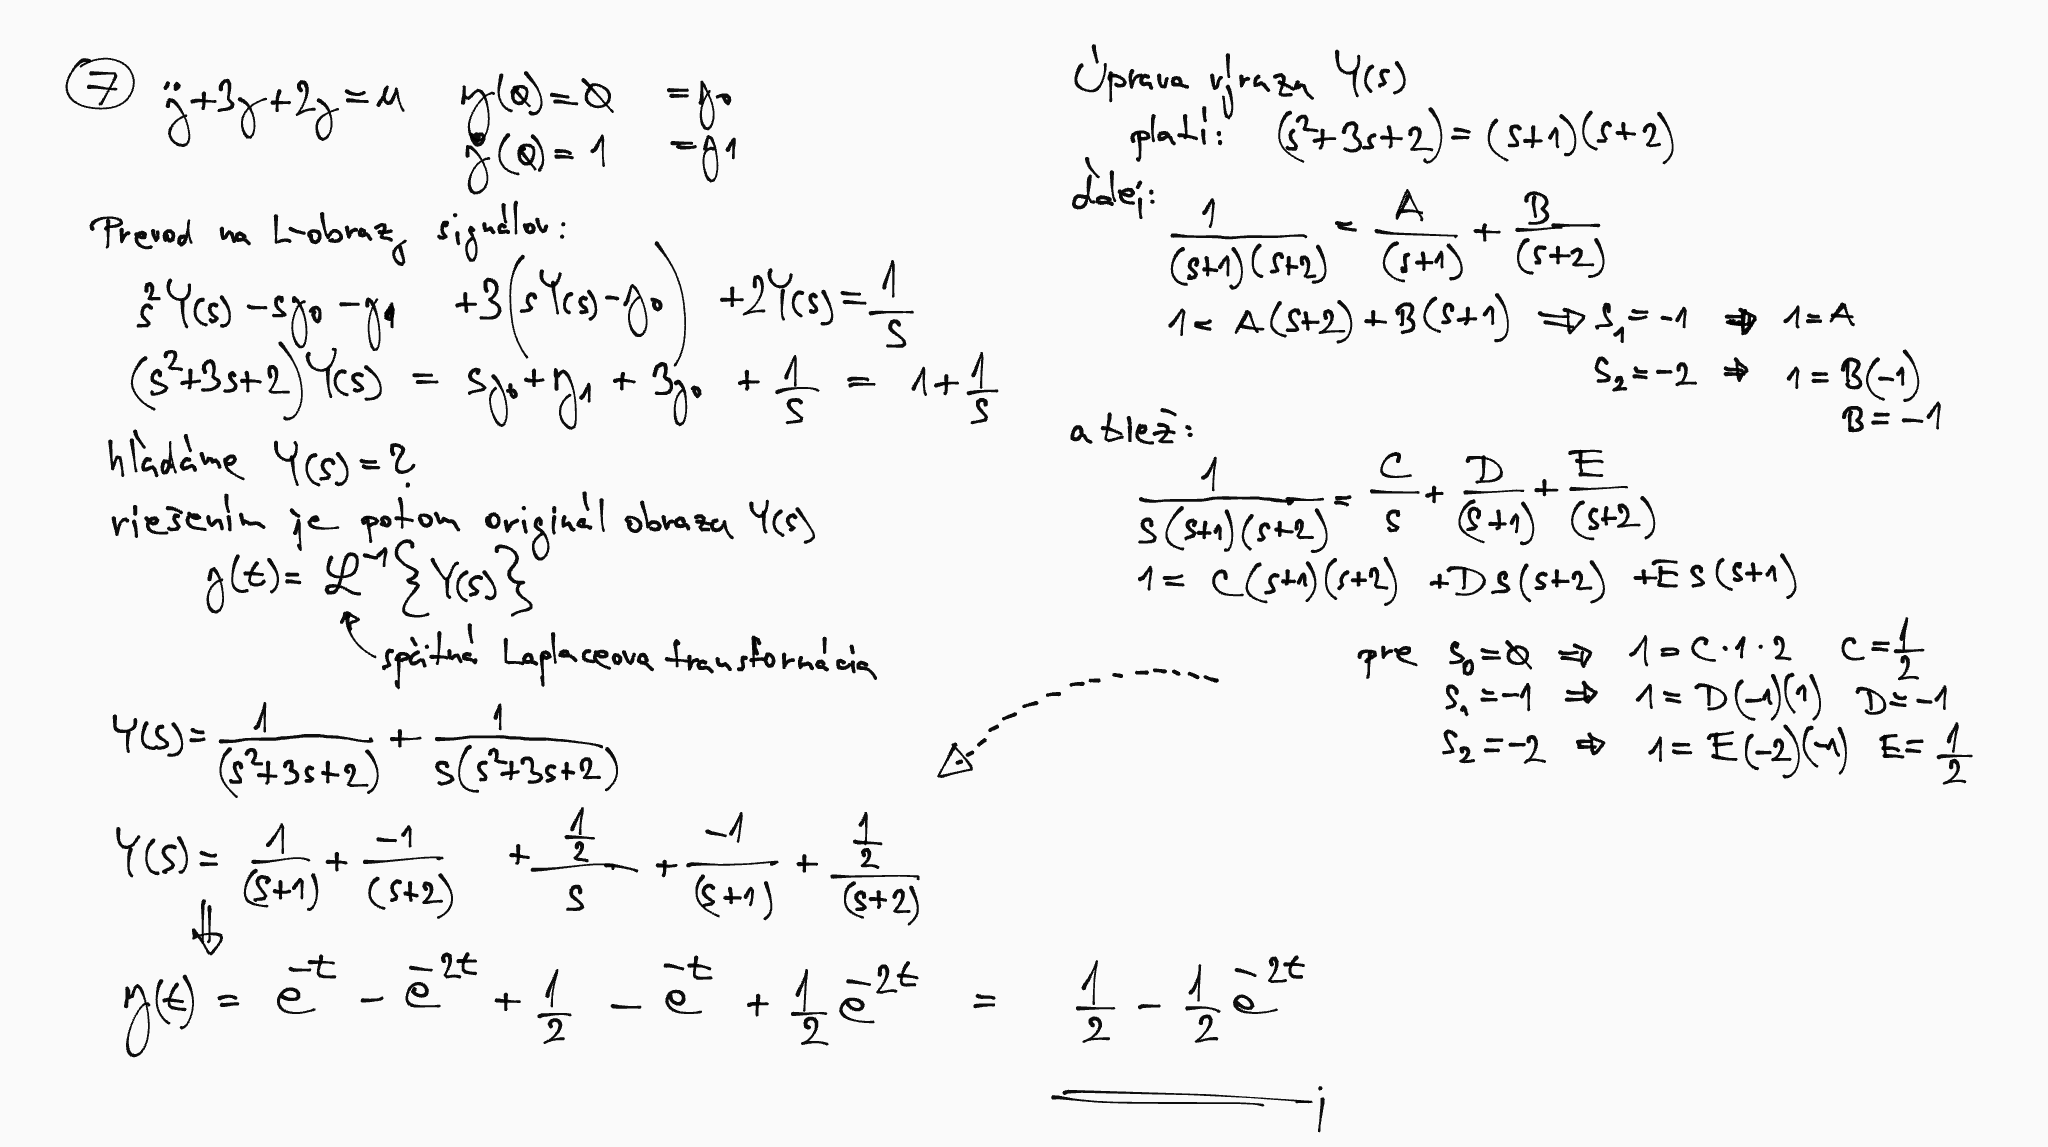 7 ÿ+3y+2y=u y(0)=0 =y₀
ẏ(0)=1 =y₁
Prevod na L-obrazy signálov:
s²Y(s) -sy₀ -y₁ +3(sY(s)-y₀) +2Y(s)=1/s
(s²+3s+2)Y(s) = sy₀+y₁ + 3y₀ + 1/s = 1+1/s
hľadáme Y(s)=?
riešením je potom originál obrazu Y(s)
y(t)= ℒ⁻¹{Y(s)}
spätná Laplaceova transformácia
Y(s)= 1/(s²+3s+2) + 1/s(s²+3s+2)
Y(s)= 1/(s+1) + -1/(s+2) + ½/s + -1/(s+1) + ½/(s+2)
⇓
y(t) = e^-t - e^-2t + 1/2 - e^-t + 1/2 e^-2t = 1/2 - 1/2 e^-2t
Úprava výrazu Y(s)
platí: (s²+3s+2)=(s+1)(s+2)
ďalej:
1/(s+1)(s+2) = A/(s+1) + B/(s+2)
1= A(s+2)+B(s+1) ⇒ s₁=-1 ⇒ 1=A
s₂=-2 ⇒ 1=B(-1)
B=-1
a tiež:
1/s(s+1)(s+2) = C/s + D/(s+1) + E/(s+2)
1= C(s+1)(s+2) +Ds(s+2) +Es(s+1)
pre s₀=0 ⇒ 1=C·1·2 C=1/2
s₁=-1 ⇒ 1=D(-1)(1) D=-1
s₂=-2 ⇒ 1=E(-2)(-1) E=1/2